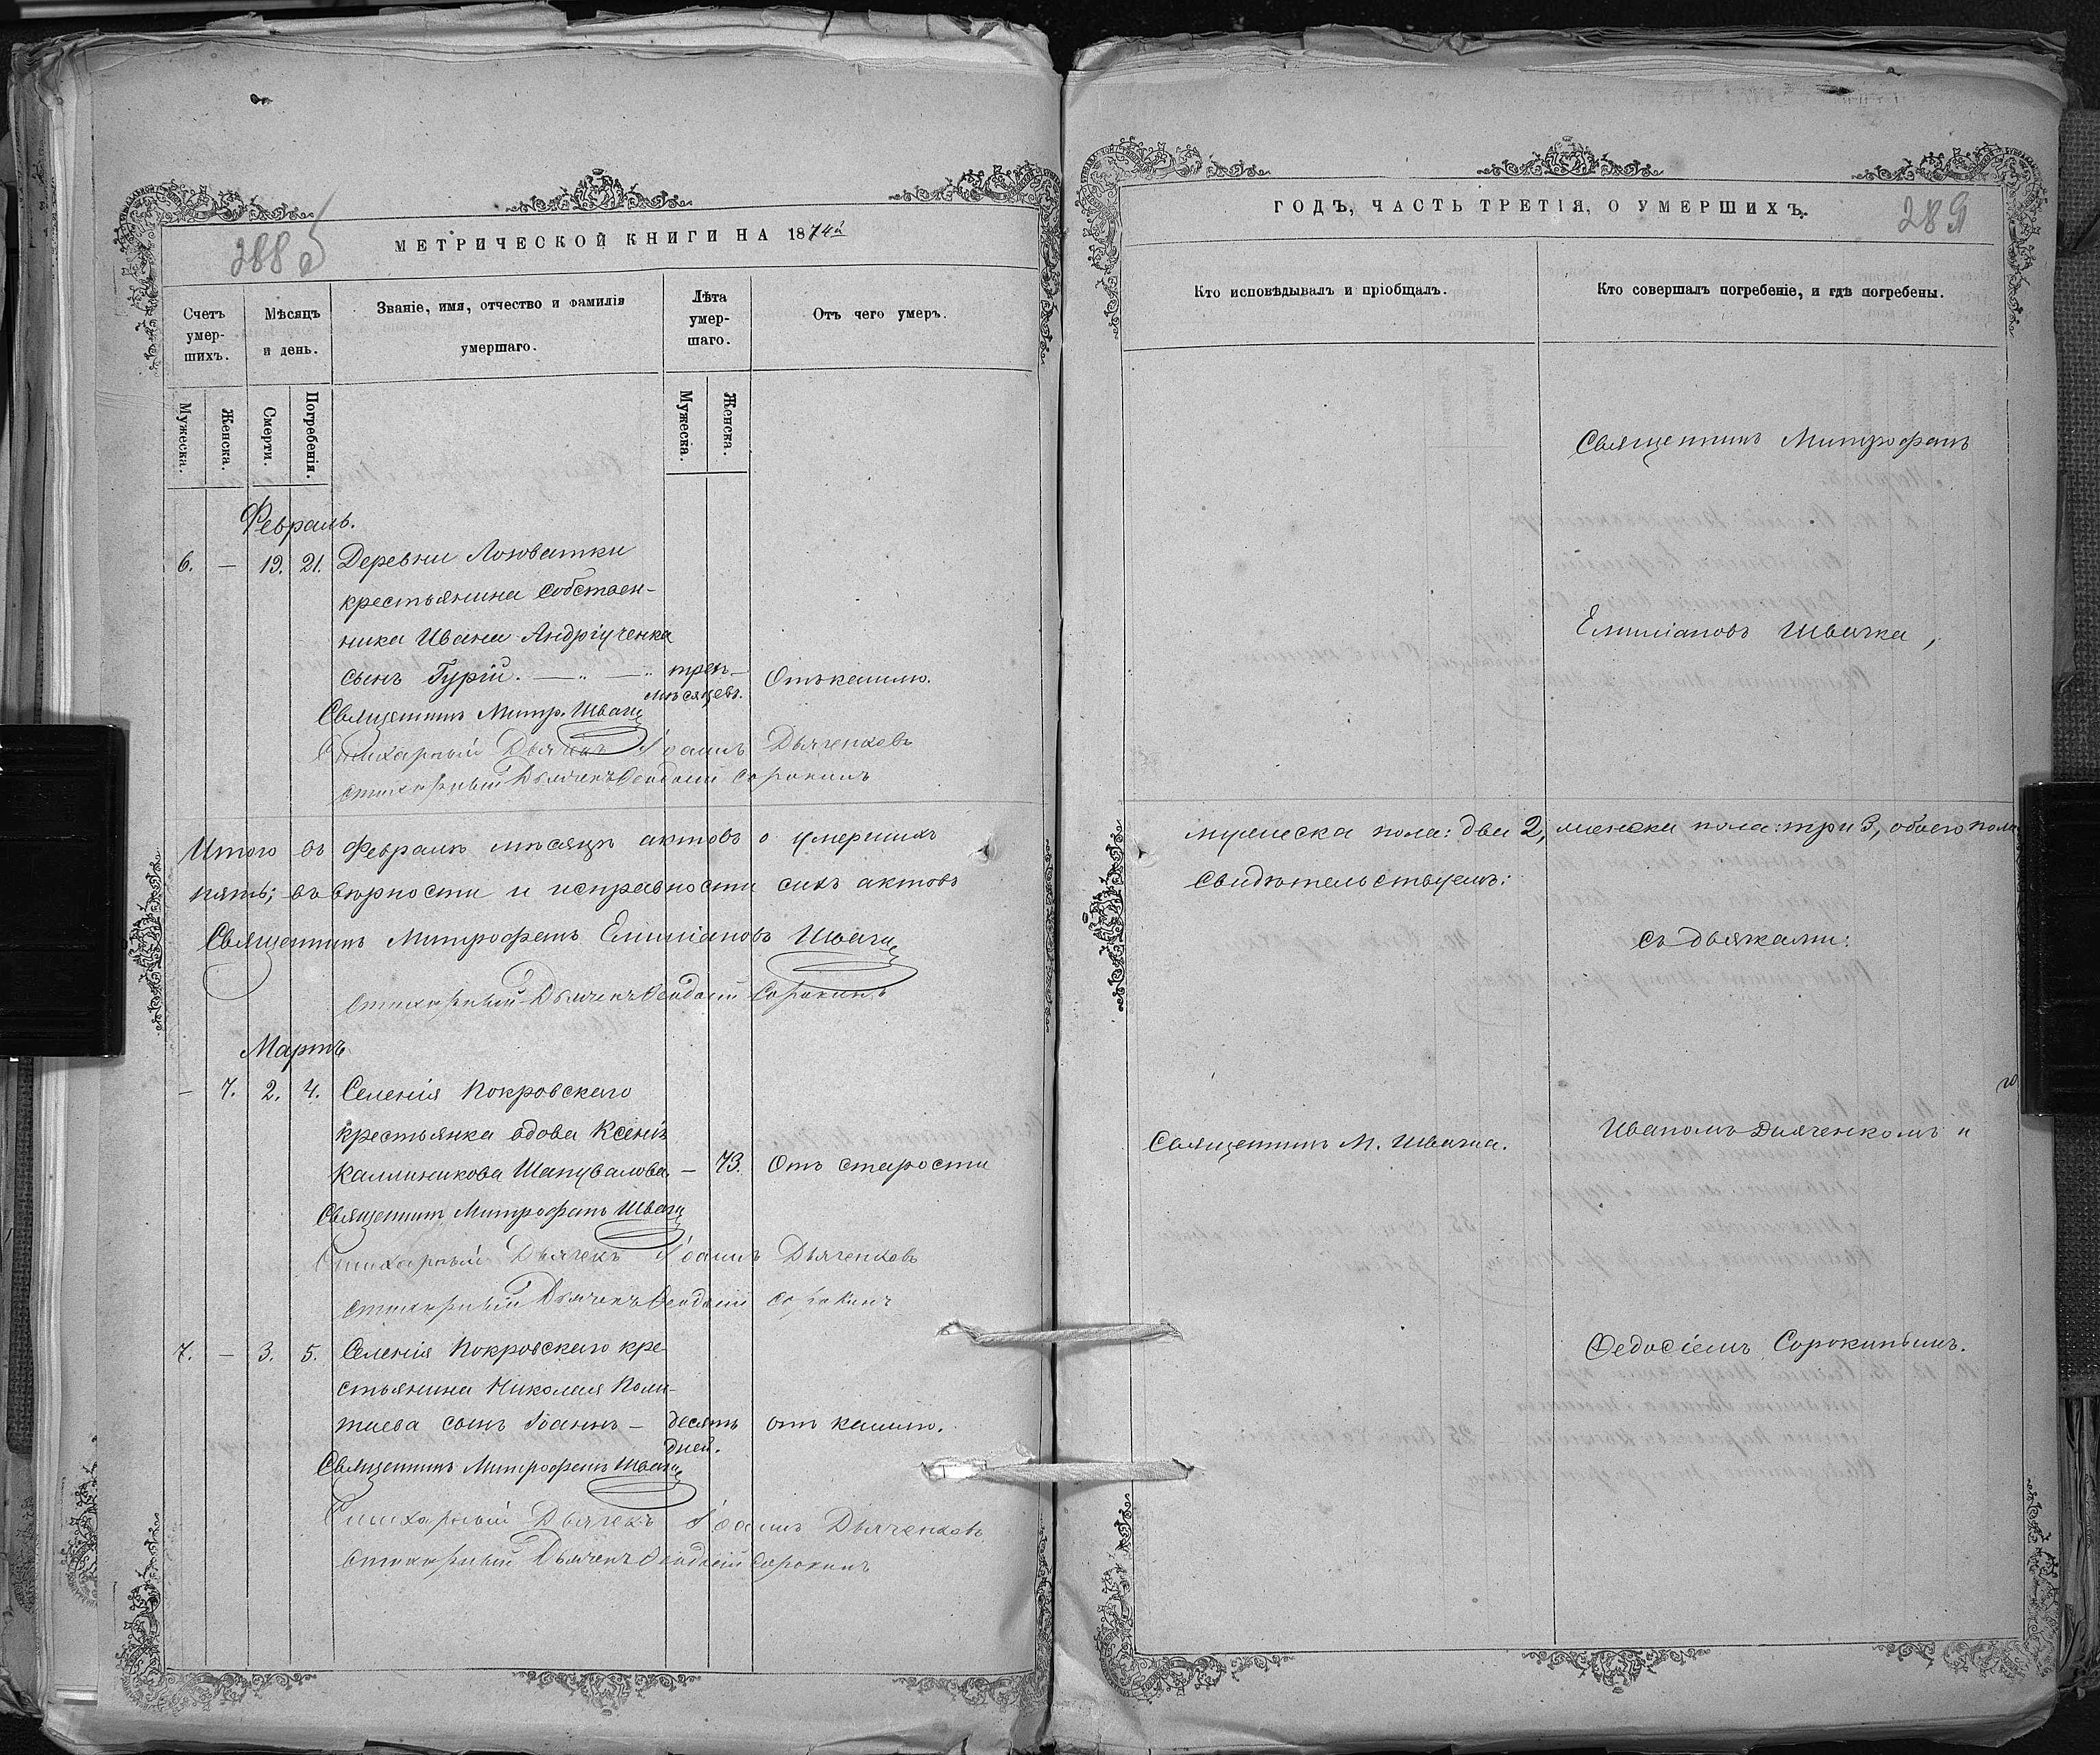 288 об
МЕТРИЧЕСКОЙ КНИГИ НА 1874й
Счетъ умер-шихъ.
Мѣсяцъ и день.
Званіе, имя, отчество и фамилія умершаго.
Лѣта умер-шаго.
Отъ чего умеръ.
Мужеска.
Женска.
Смерти.
Погребенія.
Мужеска.
Женска.
Февраль.
6. — 19. 21. Деревни Лозоватки
крестьянина собствен-
ника Ивана Андріученка
сынъ Гурій. — „ — „ трех- Отъ кашлю.
мѣсяцевъ.
Священникъ Митр. Швачка
Стихарный Дьячекъ Іоаннъ Дьяченковъ
Стихарный Дьячекъ Ѳеодосій Сорокинъ
Итого въ Февралѣ мѣсяцѣ актовъ о умершихъ
пять; въ вѣрности и исправности сихъ актовъ
Священникъ Митрофанъ Емиліановъ Швачка
Стихарный Дьячекъ Ѳеодосій Сорокинъ
Мартъ
— 7. 2. 4. Селенія Покровскаго
крестьянка вдова Ксенія
Калиникова Шаповалова — 73. Отъ старости
Священникъ Митрофанъ Швачка
Стихарный Дьячекъ Іоаннъ Дьяченковъ
Стихарный Дьячекъ Ѳеодосій Сорокинъ
7. — 3. 5. Селенія Покровскаго кре-
стьянина Николая Поли-
таева сынъ Іоаннъ — десять отъ кашлю.
дней.
Священникъ Митрофанъ Швачка
Стихарный Дьячекъ Іоаннъ Дьяченковъ
Стихарный Дьячекъ Ѳеодосій Сорокинъ
ГОДЪ, ЧАСТЬ ТРЕТІЯ, О УМЕРШИХЪ.
289
Кто исповѣдывалъ и пріобщалъ.
Кто совершалъ погребеніе, и гдѣ погребены.
Священникъ Митрофанъ
Емиліановъ Швачка,
мужеска пола: два 2, женска пола: три 3, обоего пола
свидѣтельствуемъ:
съ дьячками:
Священникъ М. Швачка.
Иваномъ Дьяченкомъ и
Ѳедосіемъ Сорокинымъ.